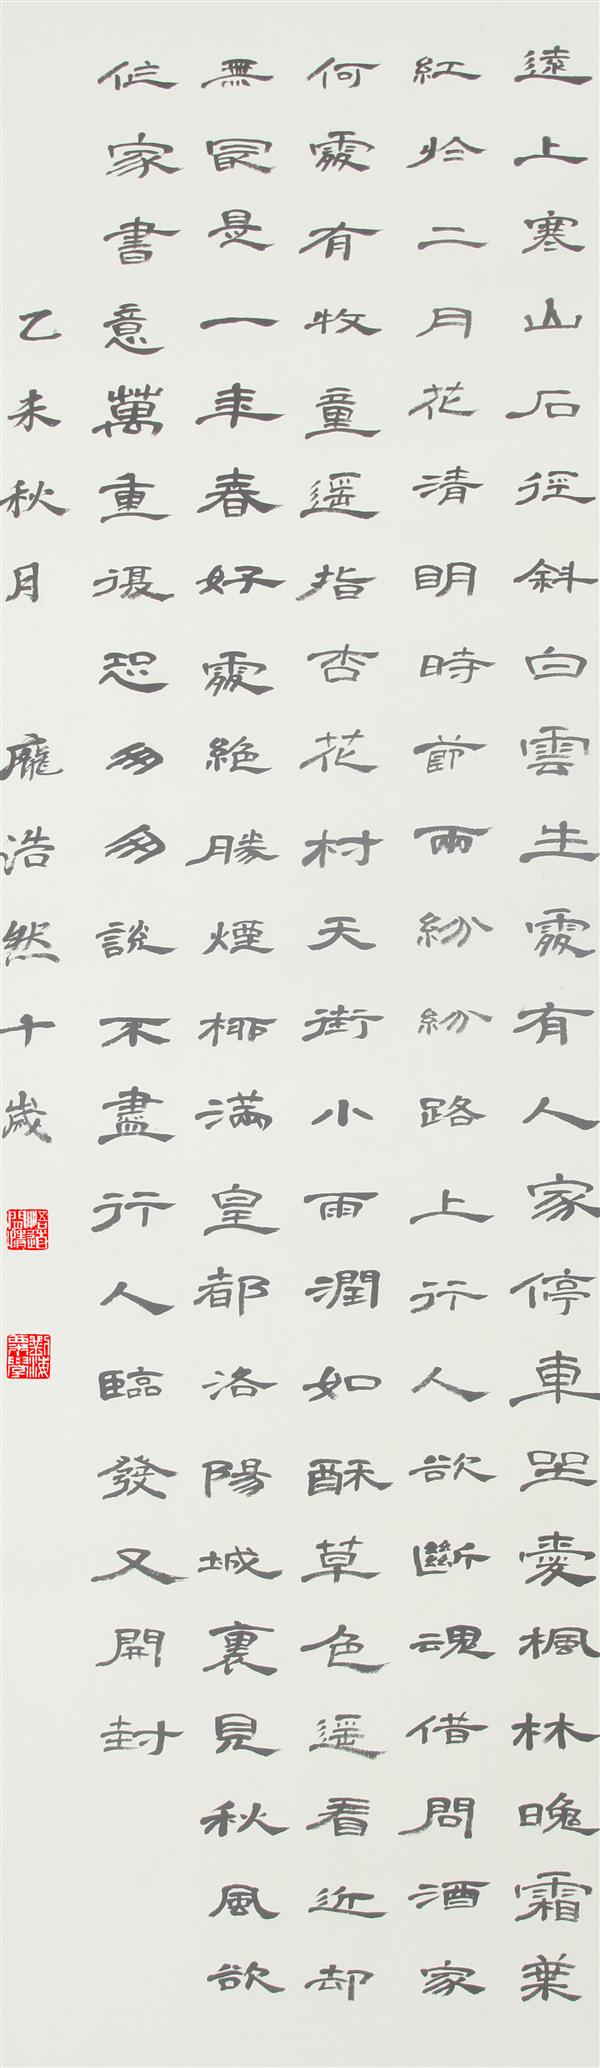 遠上寒山石徑斜白雲生處有人家停車坐愛楓林晚霜葉
紅於二月花清明時節雨紛紛路上行人欲斷魂借問酒家
何處有牧童遙指杏花村天街小雨潤如酥草色遙看近却
無最是一年春好處絕勝煙柳滿皇都洛陽城裏見秋風欲
作家書意萬重復恐匆匆說不盡行人臨發又開封
乙未秋月 龐浩然千歲